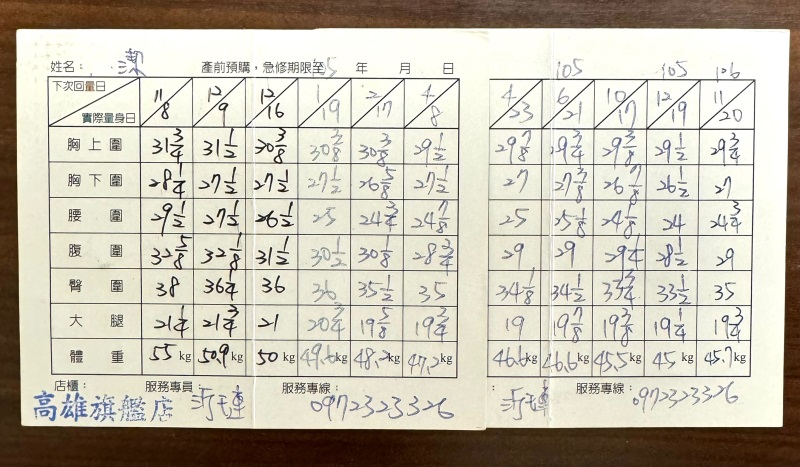 姓名： 潔 產前預購，急修期限至105年 月 日 105 105 106
下次回量日 實際量身日 11/8 12/9 12/16 1/19 2/17 4/8 4/23 6/21 10/17 12/19 11/20
胸上圍 31 3/4 31 1/2 30 3/8 30 3/8 30 3/8 29 1/2 29 7/8 29 3/4 29 3/8 29 1/2 29 3/4
胸下圍 28 1/4 27 1/2 27 1/2 27 1/2 26 5/8 27 1/2 27 27 3/8 26 7/8 26 1/2 27
腰圍 29 1/2 27 1/2 26 1/2 25 24 3/4 24 7/8 25 25 1/8 24 1/8 24 24 3/4
腹圍 32 5/8 32 1/8 31 1/2 30 1/2 30 1/8 28 3/4 29 29 29 1/4 28 1/2 29
臀圍 38 36 1/4 36 36 35 1/2 35 34 1/8 34 1/2 33 3/4 33 1/2 35
大腿 21 1/4 21 3/4 21 20 3/4 19 5/8 19 3/4 19 19 7/8 19 3/8 19 1/4 19 3/4
體重 55kg 50.9kg 50kg 49.6kg 48.2kg 47.2kg 46.6kg 46.6kg 45.5kg 45kg 45.7kg
店櫃： 服務專員 服務專線： 服務專線：
高雄旗艦店 0972323326 0972323326